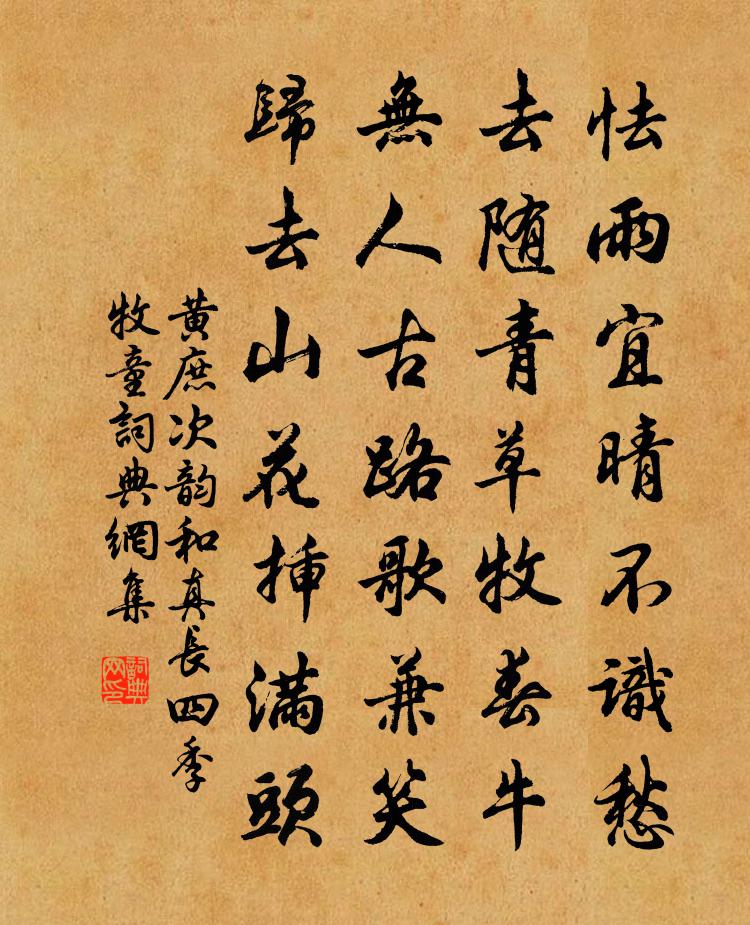 怯雨宜晴不識愁
去随青草牧春牛
無人古路歌兼笑
歸去山花挿滿頭
黄庶次韵和真長四季
牧童詞典網集
詞典
网印